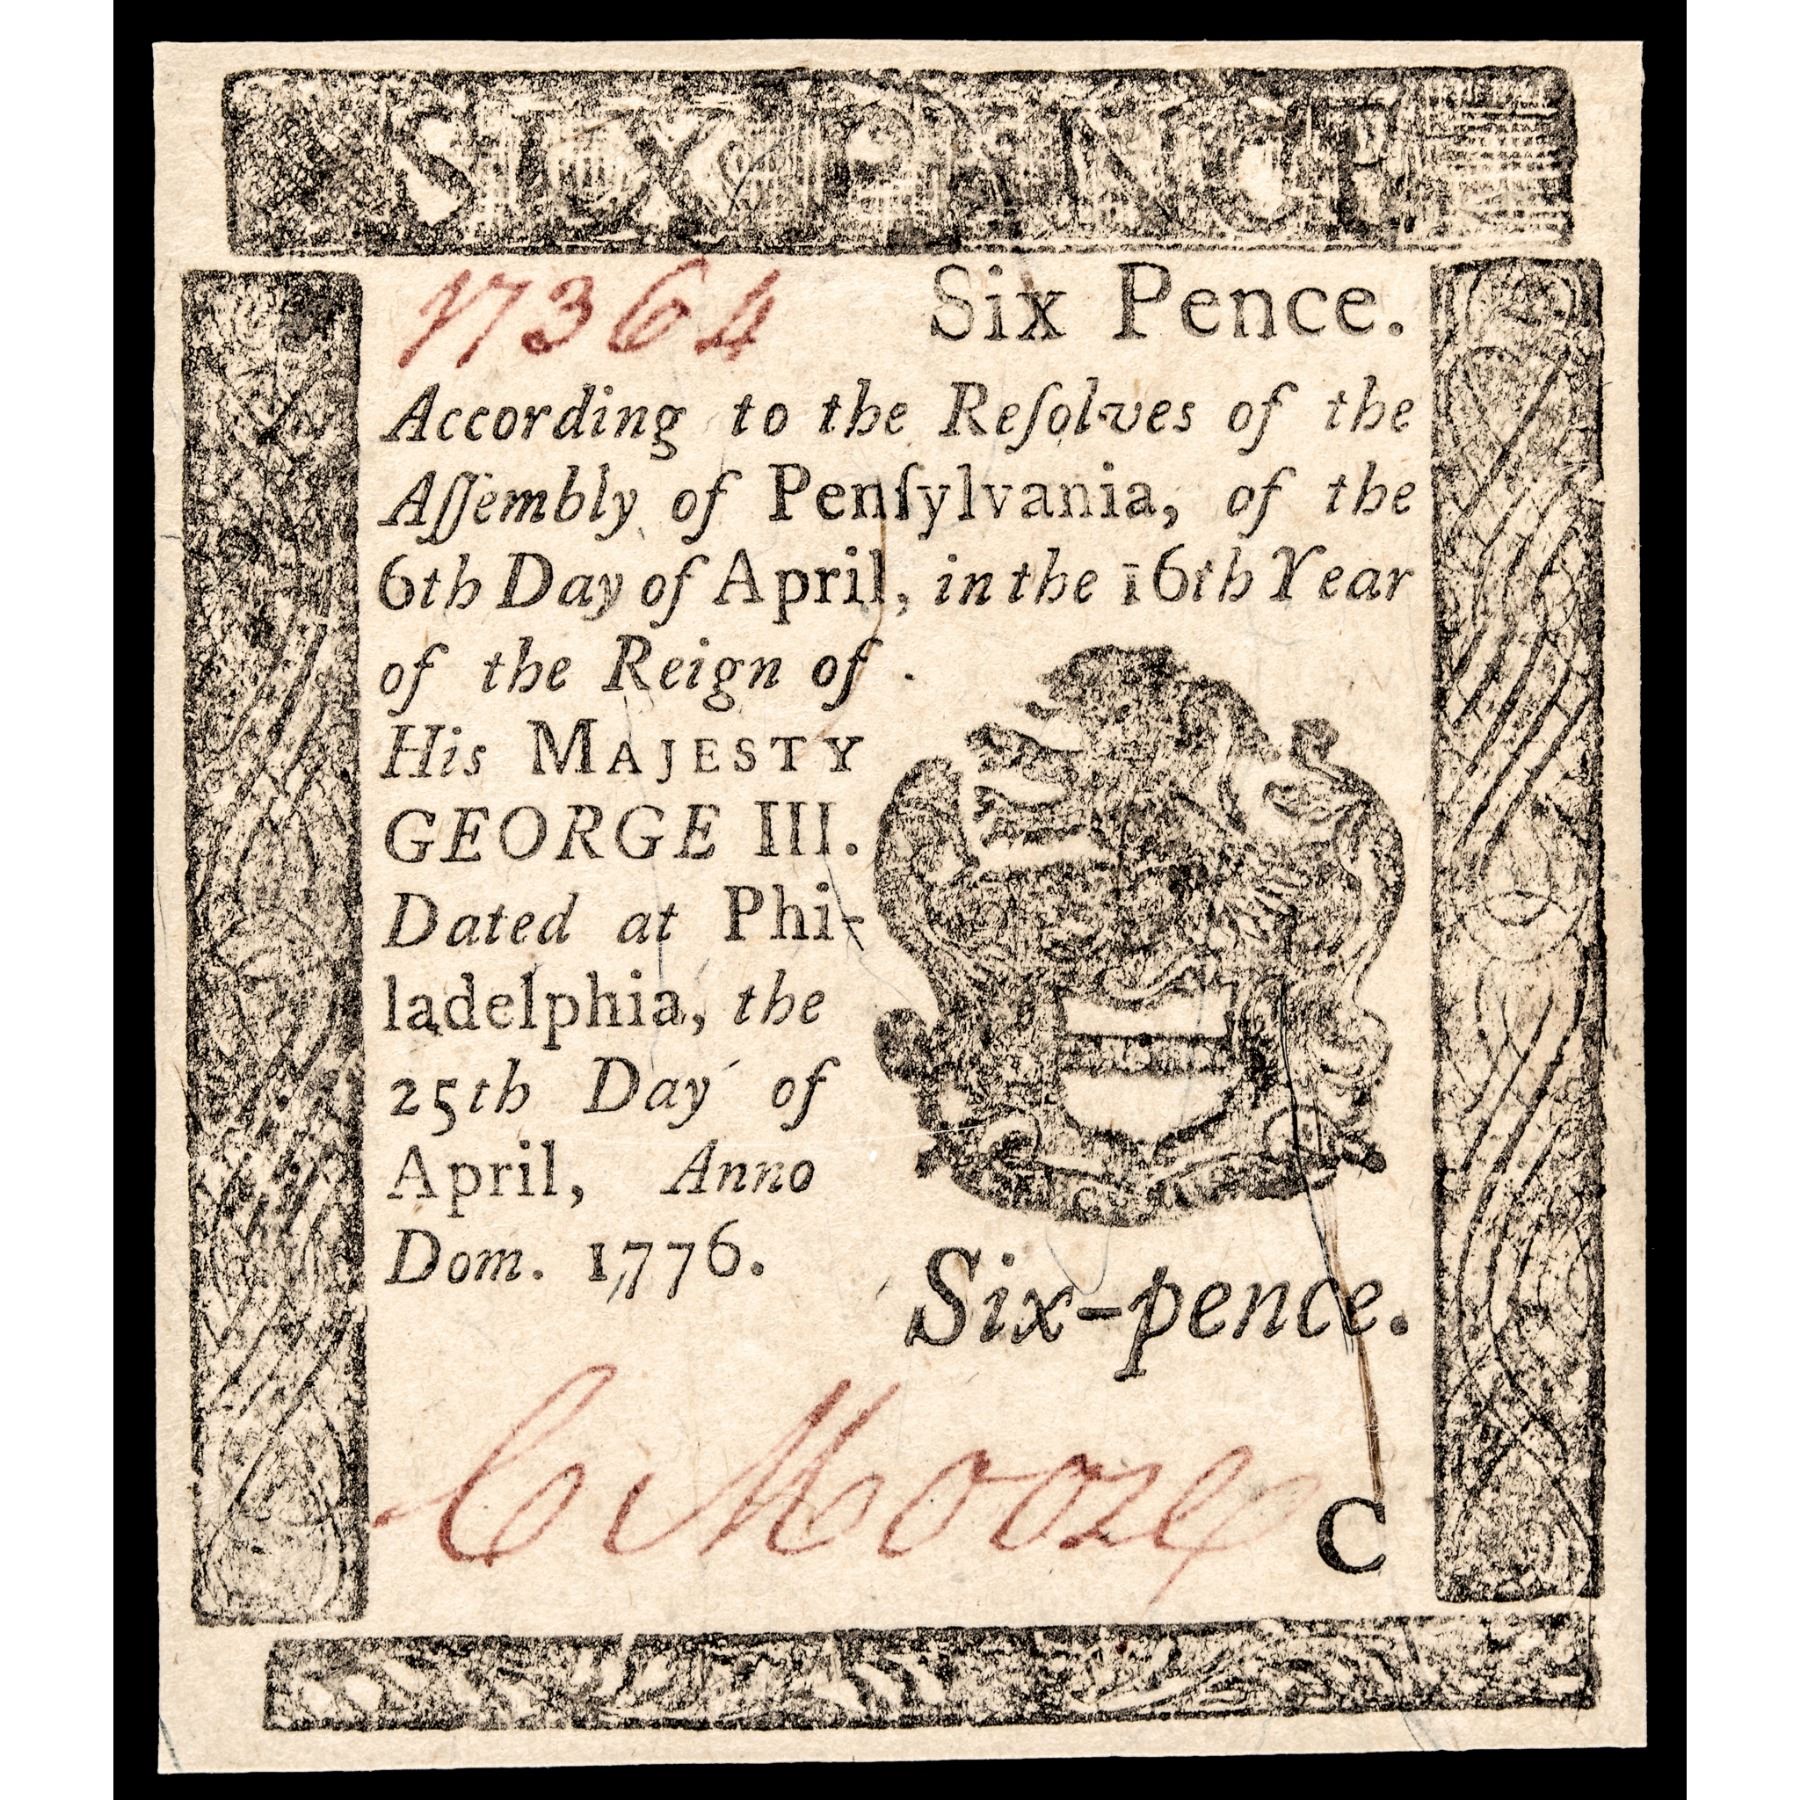 SIX PENCE
17364 Six Pence.
According to the Reſolves of the
Aſſembly of Penſylvania, of the
6th Day of April, in the 16th Year
of the Reign of
His MAJESTY
GEORGE III.
Dated at Phi-
ladelphia, the
25th Day of
April, Anno
Dom. 1776.
Six-pence.
C Moore
C